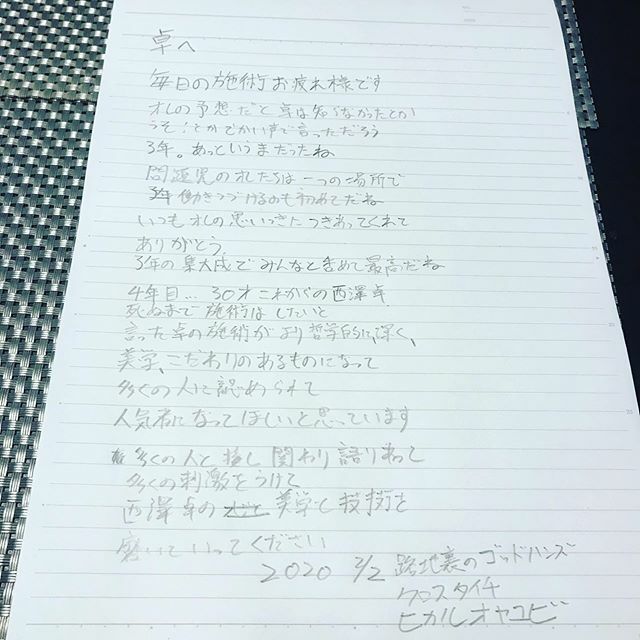 卓へ
毎日の施術お疲れ様です
オレの予想だと卓は知らなかったとか
うそ!とかでかい声で言っただろう
3年。あっというまだったね
問題児のオレたちは一つの場所で
働きつづけるのも初めてだね
いつもオレの思いつきにつきあってくれて
ありがとう
3年の集大成でみんなと含めて最高だね
4年目… 30才 これからの西澤卓
死ぬまで施術はしたいと
言った卓の施術がより哲学的に、深く、
美学、こだわりのあるものになって
多くの人に認められて
人気者になってほしいと思っています
多くの人と接し関わり語りあって
多くの刺激をうけて
西澤卓の美学と技術を
磨いていってください
2020 2/2 路地裏のゴッドハンズ
クロスタイチ
ヒカルオヤユビ